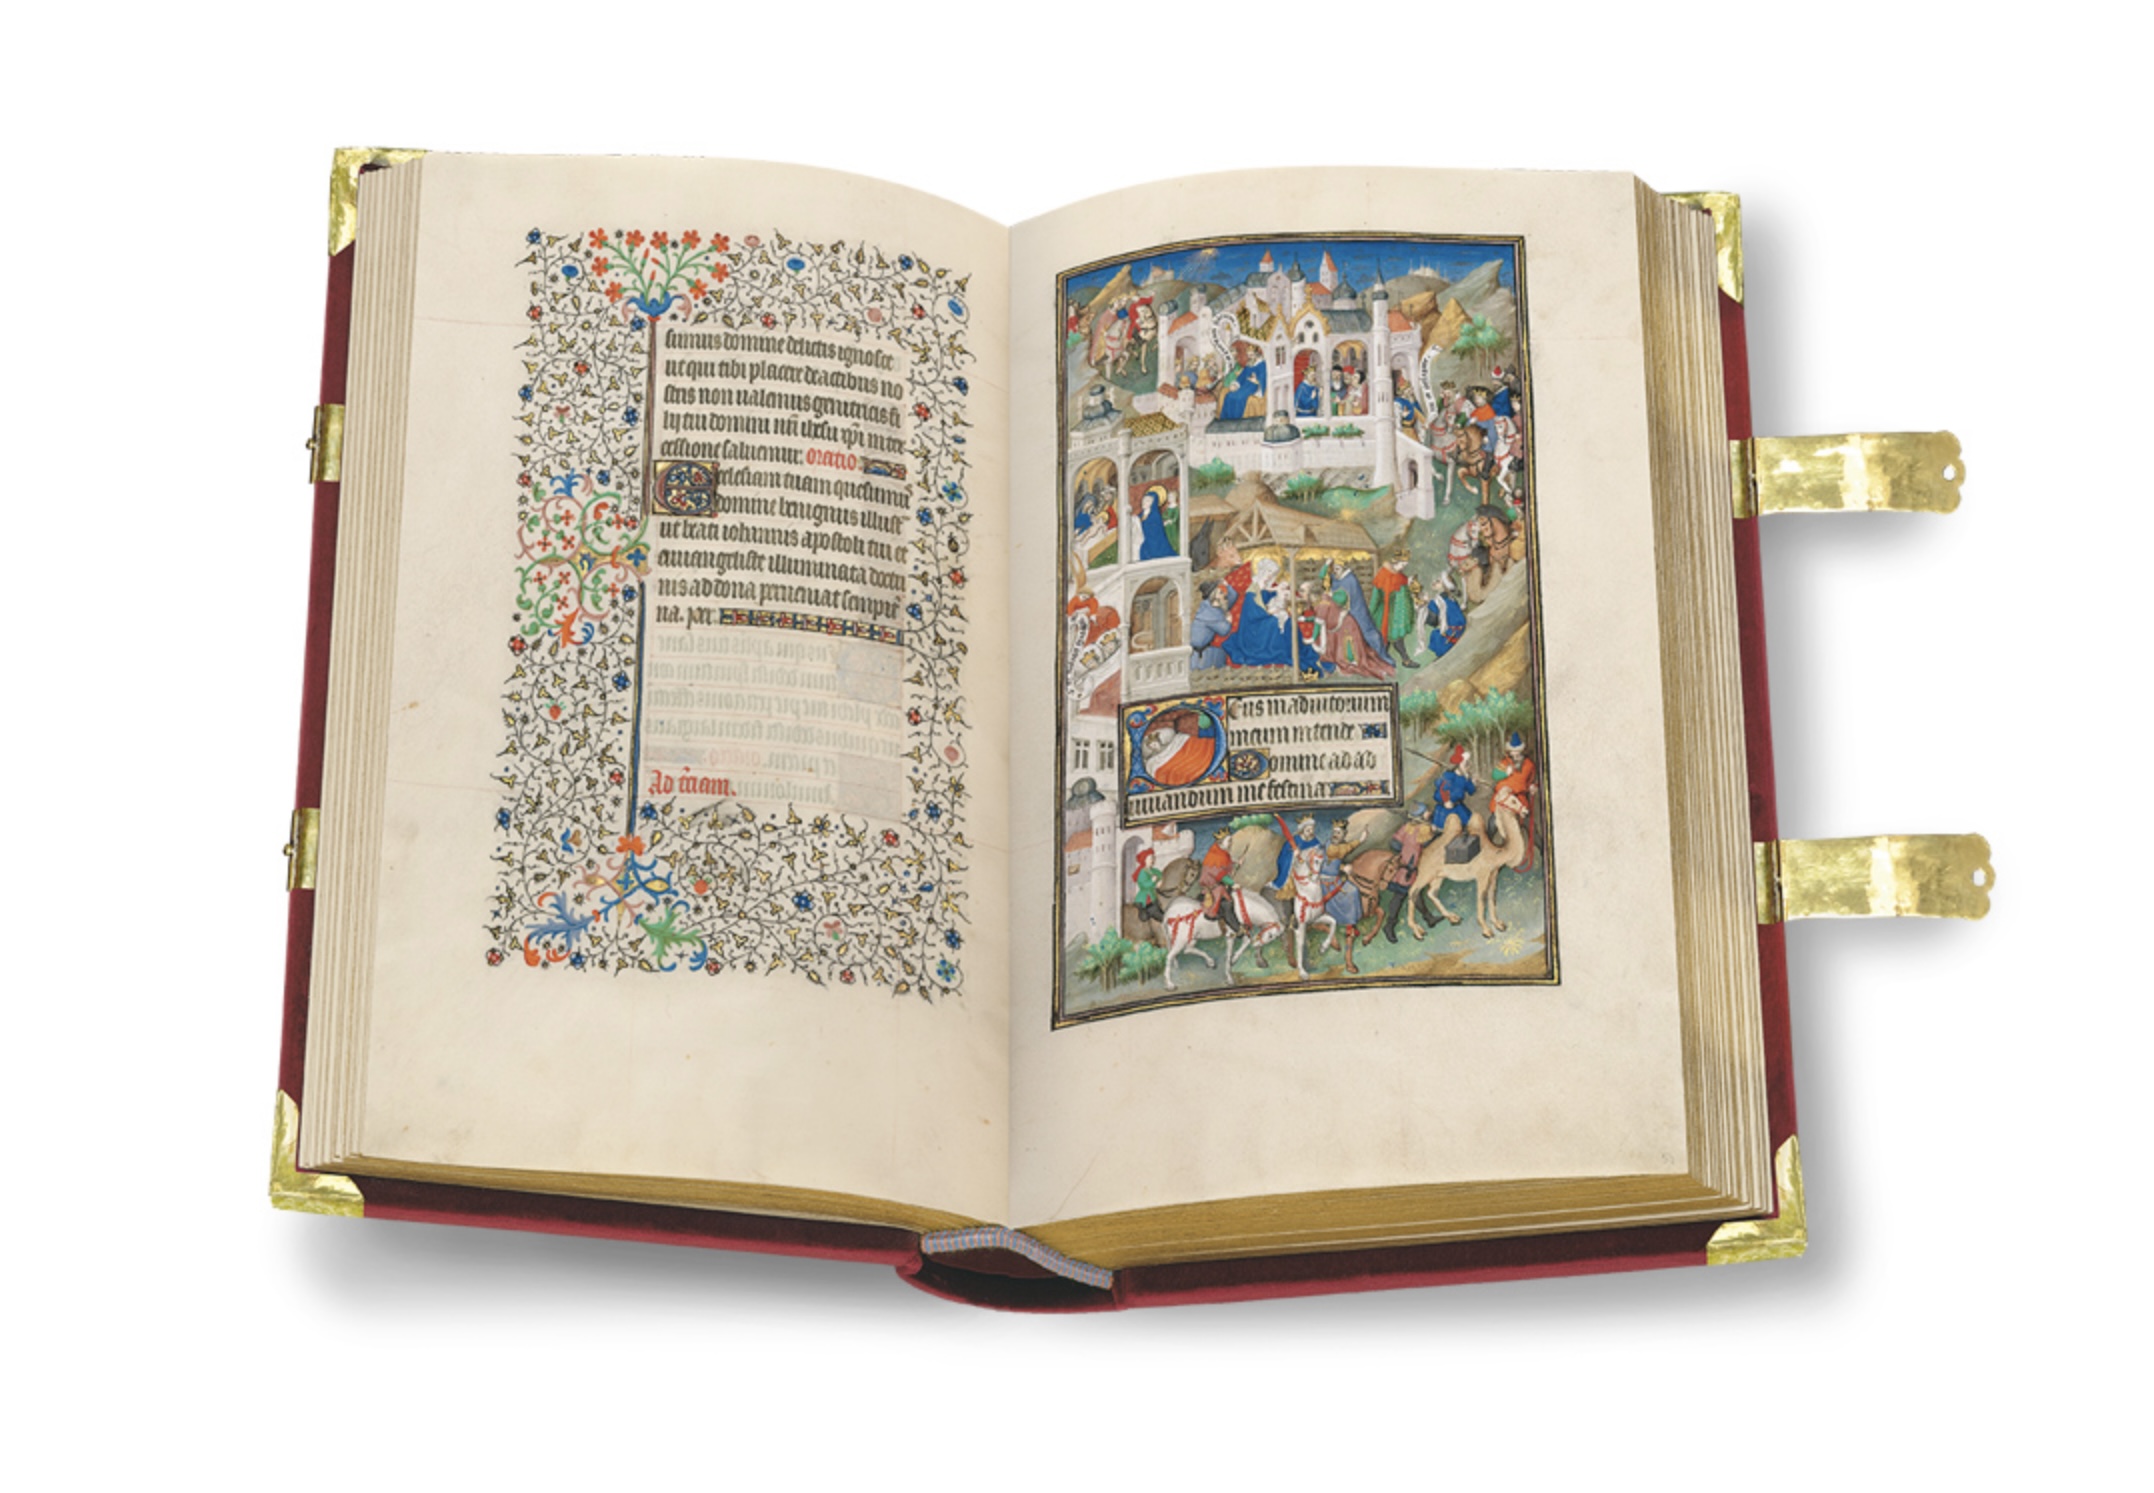 sumus domine delictis ignosce
ut qui tibi placere de actibus no
stris non ualemus genitricis fi
lij tui domini nr̄i ihesu xp̄i inter
cessione saluemur. oratio
Ecclesiam tuam quesumus
domine benignus illust
ut beati iohannis apostoli tui et
euuangeliste illuminata doctri
nis ad dona perueniat sempit̄
na. per.
Ad t̄ciam.
Deus in adiutorium
meum intende
Domine ad ad
iuuandum me festina